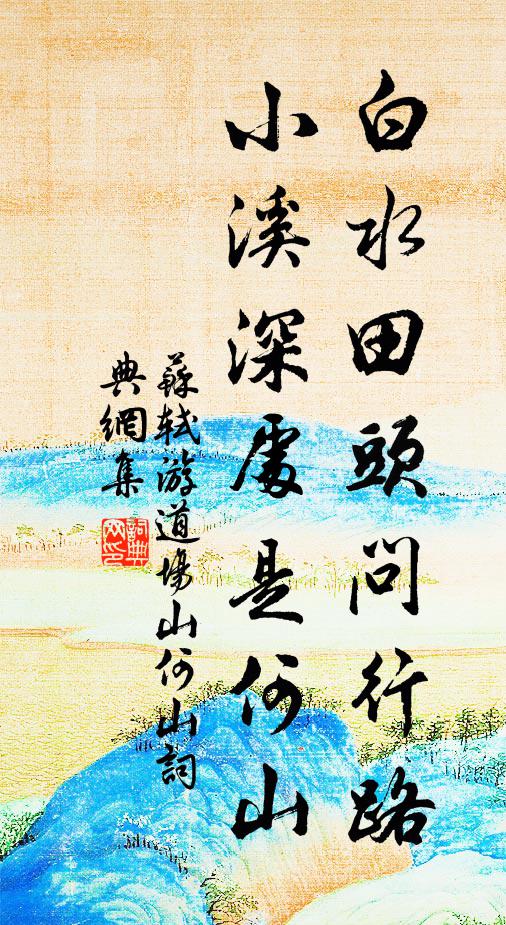 白水田頭問行路
小溪深處是何山
蘇軾游道場山何山詞
典網集
詞典網印